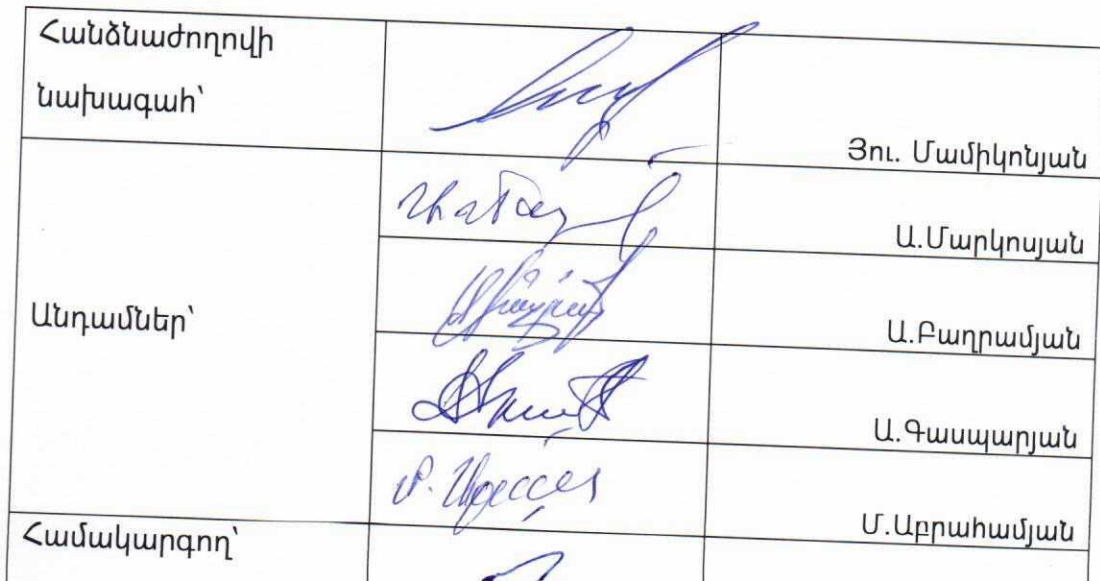 Հանձնաժողովի
նախագահ՝
Յու. Մամիկոնյան
Անդամներ՝
Ա.Մարկոսյան
Ա.Բաղրամյան
Ա.Գասպարյան
Մ.Աբրահամյան
Համակարգող՝